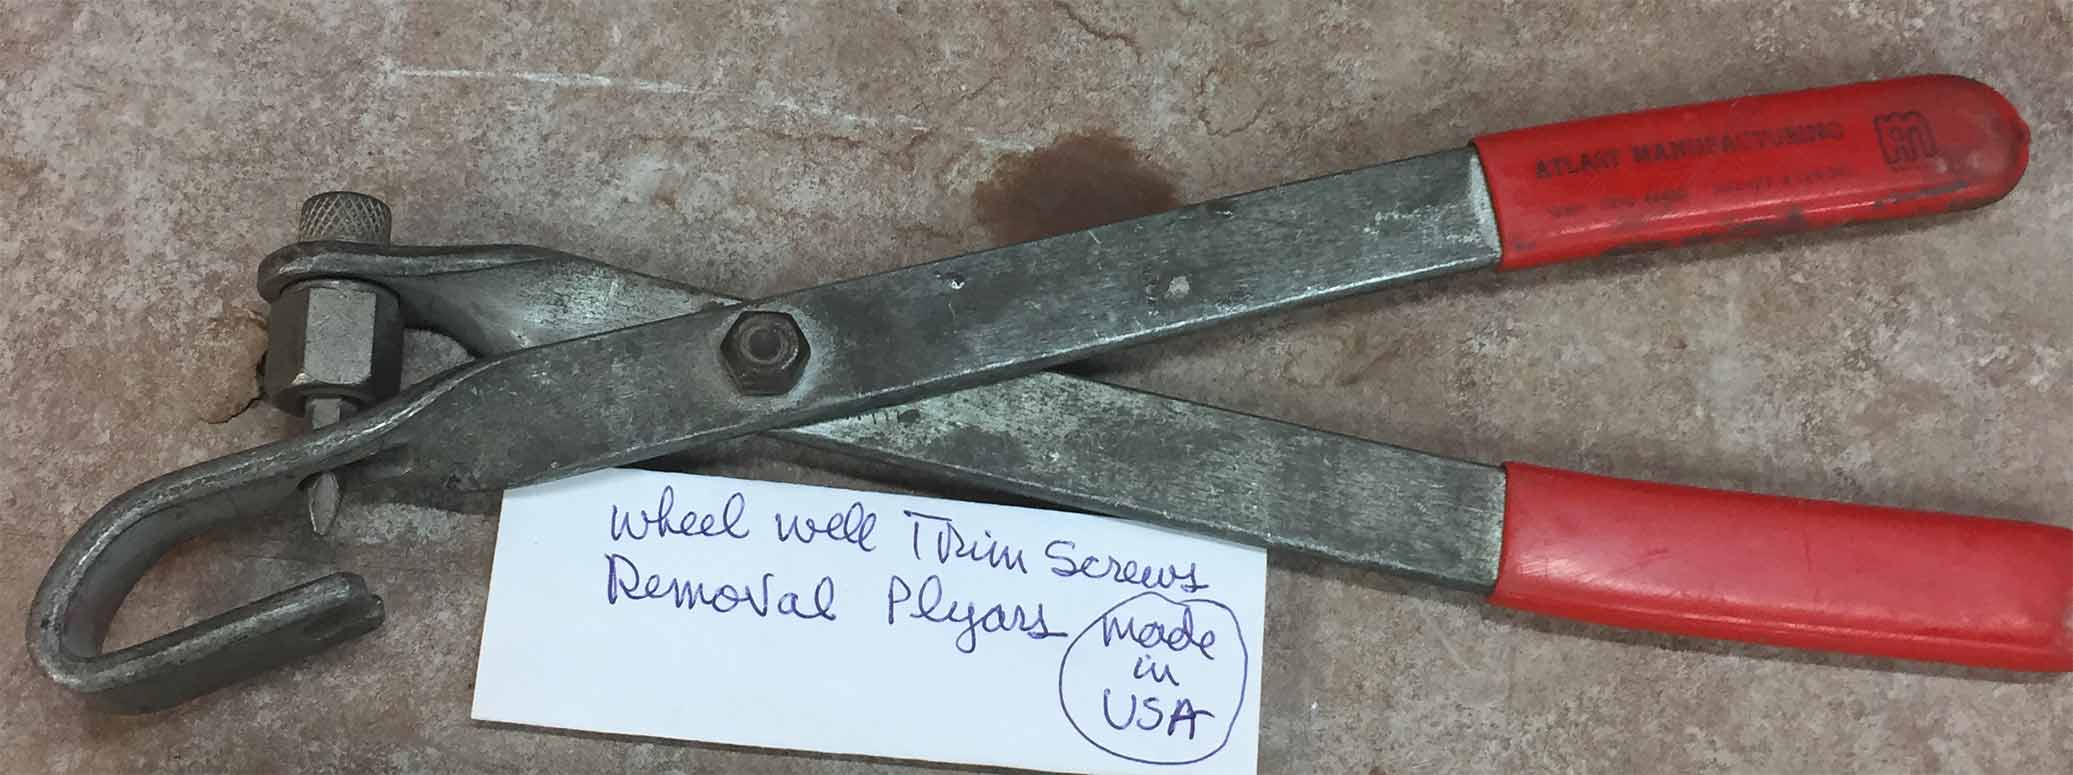 ATLAST MANUFACTURING
wheel well Trim Screws
Removal Plyars
made
in
USA